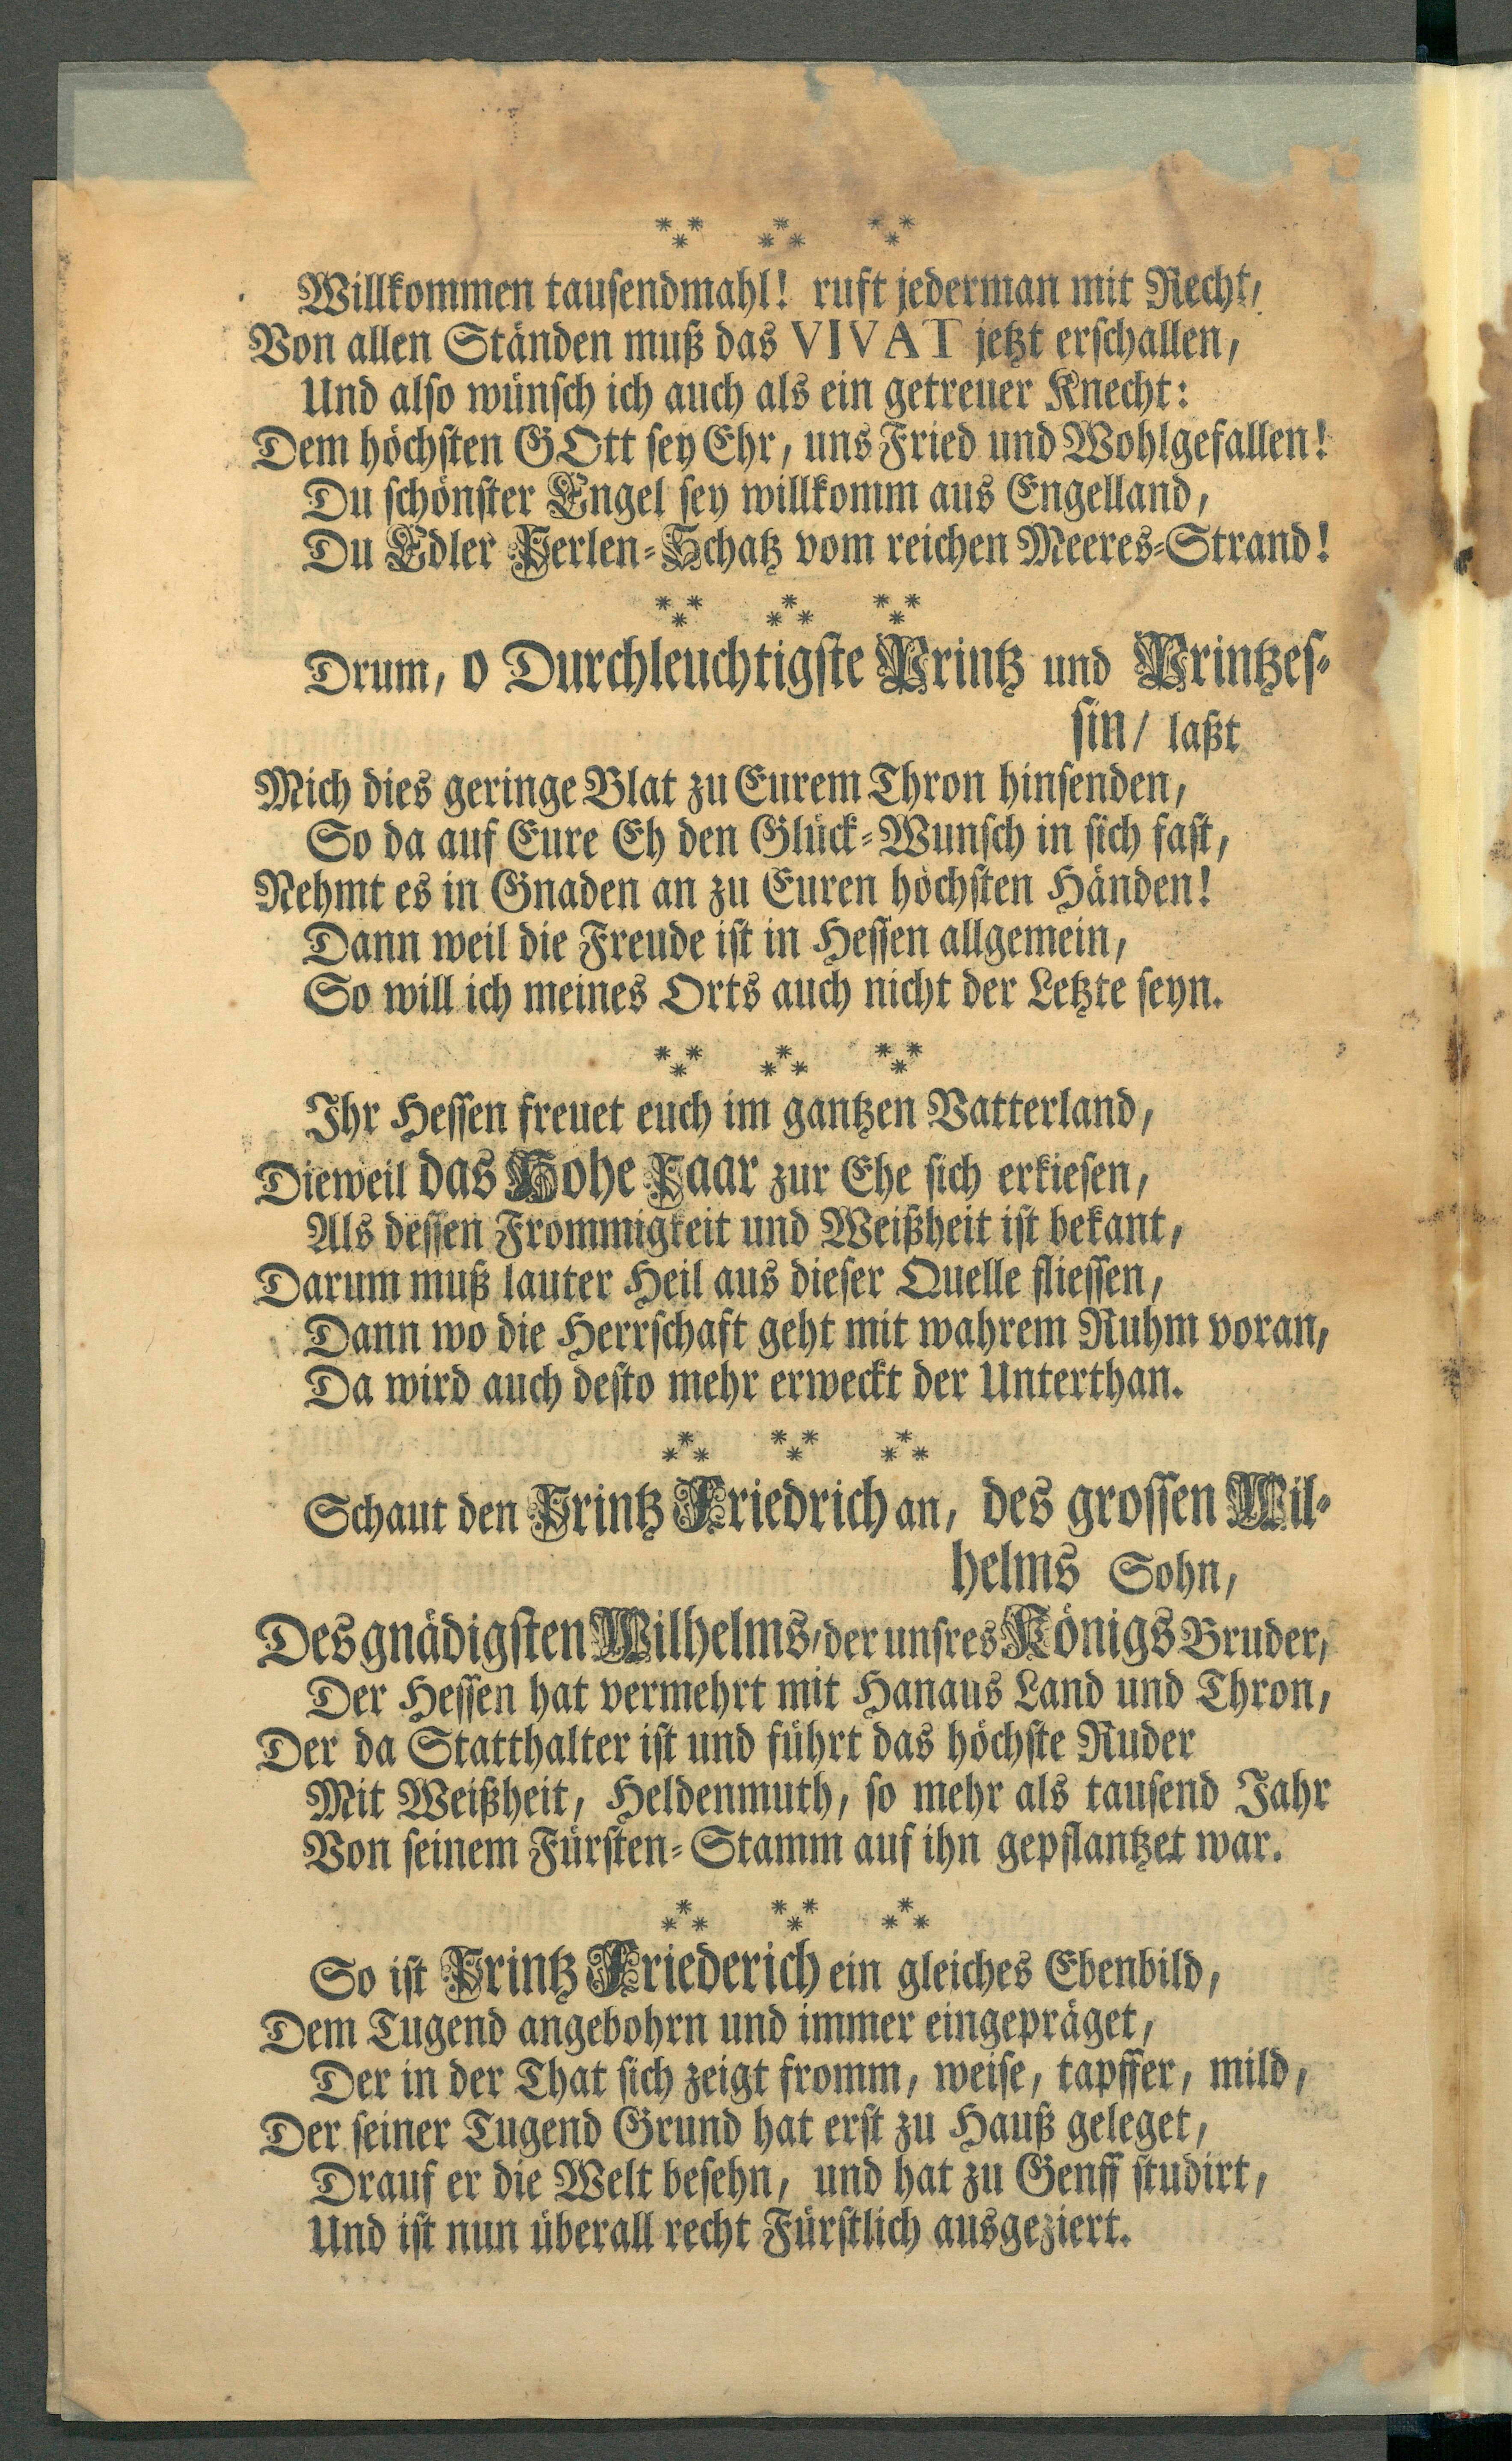 Willkommen tausendmahl! ruft jederman mit Recht,
Von allen Ständen muß das VIVAT jetzt erschallen,
Und also wünsch ich auch als ein getreuer Knecht:
Dem höchsten GOtt sey Ehr, uns Fried und Wohlgefallen!
Du schönster Engel sey willkomm aus Engelland,
Du Edler Perlen-Schatz vom reichen Meeres-Strand!
Drum, o Durchleuchtigste Printz und Printzes-
sin/ laßt
Mich dies geringe Blat zu Eurem Thron hinsenden,
So da auf Eure Eh den Glück-Wunsch in sich fast,
Nehmt es in Gnaden an zu Euren höchsten Händen!
Dann weil die Freude ist in Hessen allgemein,
So will ich meines Orts auch nicht der Letzte seyn.
Ihr Hessen freuet euch im gantzen Vatterland,
Dieweil das Hohe Paar zur Ehe sich erkiesen,
Als dessen Frommigkeit und Weißheit ist bekant,
Darum muß lauter Heil aus dieser Quelle fliessen,
Dann wo die Herrschaft geht mit wahrem Ruhm voran,
Da wird auch desto mehr erweckt der Unterthan.
Schaut den Printz Friedrich an, des grossen Wil-
helms Sohn,
Des gnädigsten Wilhelms, der unsres Königs Bruder,
Der Hessen hat vermehrt mit Hanaus Land und Thron,
Der da Statthalter ist und führt das höchste Ruder
Mit Weißheit, Heldenmuth, so mehr als tausend Jahr
Von seinem Fürsten-Stamm auf ihn gepflantzet war.
So ist Printz Friederich ein gleiches Ebenbild,
Dem Tugend angebohrn und immer eingepräget,
Der in der That sich zeigt fromm, weise, tapffer, mild,
Der seiner Tugend Grund hat erst zu Hauß geleget,
Drauf er die Welt besehn, und hat zu Genff studirt,
Und ist nun überall recht Fürstlich ausgeziert.